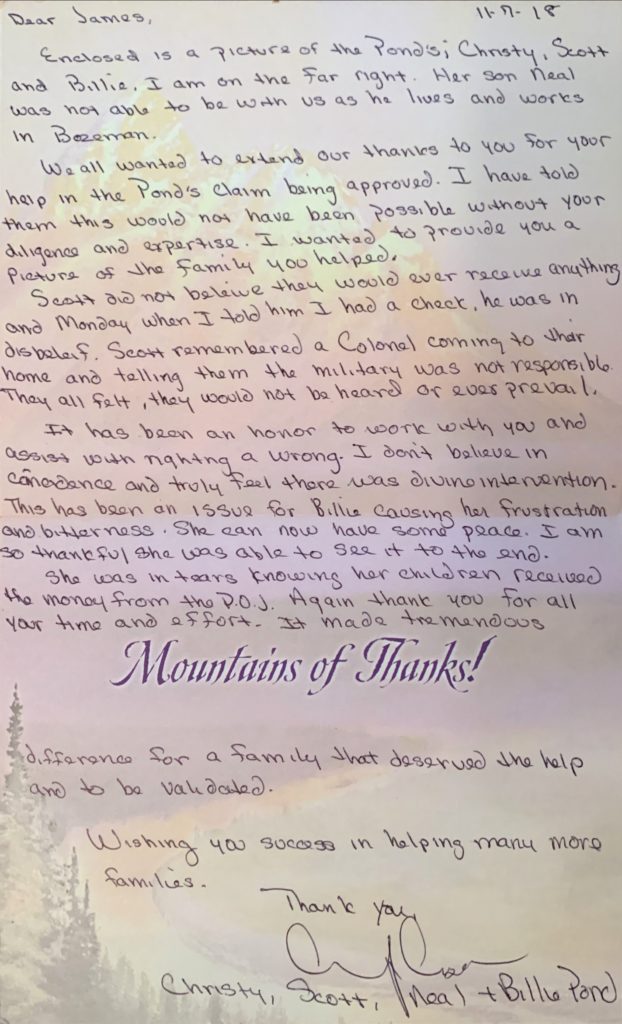 Dear James,
11-7-18
Enclosed is a picture of the Pond's; Christy, Scott
and Billie. I am on the far right. Her son Neal
was not able to be with us as he lives and works
in Bozeman.
We all wanted to extend our thanks to you for your
help in the Pond's claim being approved. I have told
them this would not have been possible without your
diligence and expertise. I wanted to provide you a
picture of the family you helped.
Scott did not beleive they would ever receive anything
and Monday when I told him I had a check, he was in
disbeleif. Scott remembered a Colonel coming to their
home and telling them the military was not responsible.
They all felt, they would not be heard or ever prevail.
It has been an honor to work with you and
assist with righting a wrong. I don't believe in
and truly feel there was divine intervention.
This has been an issue for Billie causing her frustration
and bitterness. She can now have some peace. I am
so thankful she was able to see it to the end.
She was in tears knowing her children received
the money from the D.O.J. Again thank you for all
your time and effort. It made tremendous
Mountains of Thanks!
difference for a family that deserved the help
and to be validated.
Wishing you success in helping many more
families.
Thank you,
Christy, Scott, Neal + Billie Pond